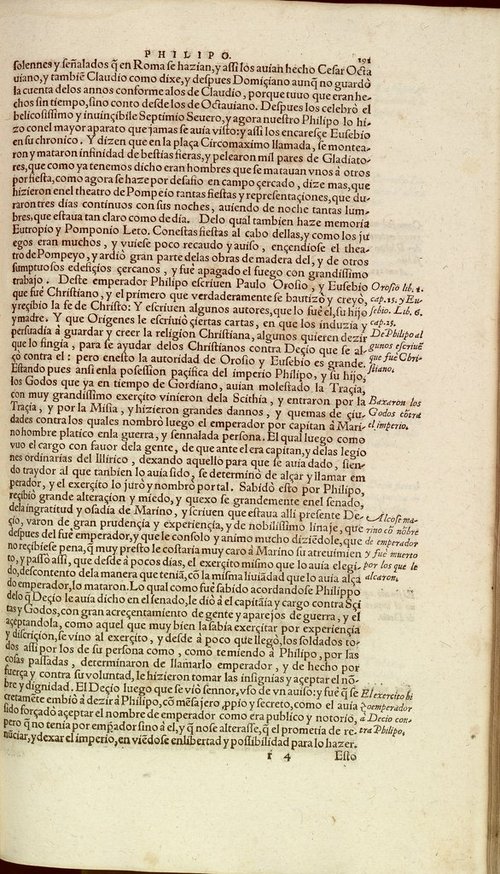 PHILIPO.
191
solennes y señalados q̃ en Roma se hazian, y assi los auian hecho Cesar Octa
uiano, y tambiẽ Claudio como dixe, y despues Domiçiano aunq̃ no guardò
la cuenta delos annos conforme alos de Claudio, porque tuuo que eran he-
chos sin tiempo, sino conto desde los de Octauiano. Despues los celebrò el
belicosissimo y inuinçibile Septimio Seuero, y agora nuestro Philipo lo hi-
zo conel mayor aparato que jamas se auia visto: y assi los encaresçe Eusebio
en su chronico. Y dizen que en la plaça Circomaximo llamada, se montea-
ron y mataron infinidad de bestias fieras, y pelearon mil pares de Gladiato-
res, que como ya tenemos dicho eran hombres que se matauan vnos à otros
por fiesta, como agora se haze por desafio en campo çercado, dize mas, que
hizieron enel theatro de Pompeio tantas fiestas y representaçiones, que du-
raron tres dias continuos con sus noches, auiendo de noche tantas lum-
bres, que estaua tan claro como de dia. Delo qual tambien haze memoria
Eutropio y Pomponio Leto. Con estas fiestas al cabo dellas, y como los ju
egos eran muchos, y vuiese poco recaudo y auiso, ençendiose el thea-
tro de Pompeyo, y ardiò gran parte delas obras de madera del, y de otros
sumptuosos edefiçios çercanos, y fuè apagado el fuego con grandissimo
trabajo. Deste emperador Philipo escriuen Paulo Orosio, y Eusebio
que fuè Christiano, y el primero que verdaderamente se bautizò y creyò,
y reçibio la fe de Christo: Y escriuen algunos autores, que lo fuè el, su hijo
y madre. Y que Origenes le escriuiò çiertas cartas, en que los induzia y
persuadia à guardar y creer la religion Christiana, algunos quieren dezir
que lo fingia, para se ayudar delos Christianos contra Deçio que se al-
çò contra el: pero enesto la autoridad de Orosio y Eusebio es grande.
Estando pues ansi enla posession paçifica del imperio Philipo, y su hijo,
los Godos que ya en tiempo de Gordiano, auian molestado la Traçia,
con muy grandissimo exerçito vinieron dela Scithia, y entraron por la
Traçia, y por la Misia, y hizieron grandes dannos, y quemas de çiu-
dades contra los quales nombrò luego el emperador por capitan à Mari-
no hombre platico enla guerra, y sennalada persona. El qual luego como
vuo el cargo con fauor dela gente, de que ante el era capitan, y delas legio
nes ordinarias del Illirico, dexando aquello para que se auia dado, sien-
do traydor al que tanbien lo auia sido, se determinò de alçar y llamar em
perador, y el exerçito lo jurò y nombrò por tal. Sabido esto por Philipo,
reçibiò grande alteraçion y miedo, y quexo se grandemente enel senado,
dela ingratitud y osadia de Marino, y escriuen que estaua alli presente De-
çio, varon de gran prudençia y experiençia, y de nobilissimo linaje, que
despues fuè emperador, y que le consolo y animo mucho diziẽdole, que
no reçibiese pena, q̃ muy presto le costaria muy caro à Marino su atreuimien
to, y passò assi, que desde à pocos dias, el exerçito mismo que lo auia elegi-
do, descontento dela manera que teniã, cõ la misma liuiadad que lo auia alça
do emperador, lo mataron. Lo qual como fuè sabido acordandose Philippo
delo q̃ Deçio le auia dicho en el senado, le diò à el capitãia y cargo contra Sçi
tas y Godos, con gran acreçentamiento de gente y aparejos de guerra, y el
açeptandola, como aquel que muy bien la sabia exerçitar por experiençia
y discriçion, se vino al exerçito, y desde à poco que llegò, los soldados to-
dos assi por los de su persona como, como temiendo à Philipo, por las
cosas passadas, determinaron de llamarlo emperador, y de hecho por
fuerça y contra su voluntad, le hizieron tomar las insignias y aceptar el nõ-
bre y dignidad. El Deçio luego que se viò sennor, vso de vn auiso: y fuè q̃ se
cretamẽte embiò à dezir à Philipo, cõ mẽsajero, ppio y secreto, como el auia
sido forçadò açeptar el nombre de emperador como era publico y notorio,
pero q̃ no tenia por empador sino à el, y q̃ no se alterasse, q̃ el prometia de re-
nũciar, y dexar el imperio, en viẽdose enlibertad y possibilidad para lo hazer.
Orosio lib. 1.
cap. 15. y Eu
sebio. Lib. 6.
cap. 25.
De Philipo al
gunos escriuẽ
que fuè Chri-
stiano.
Baxaron los
Godos cõtra
el imperio.
Alçose ma-
rino cõ nõbre
de emperador
y fuè muerto
por los que le
alcaron.
El exercito hi
ço emperador
à Decio con-
tra Philipo.
1 4
Esto